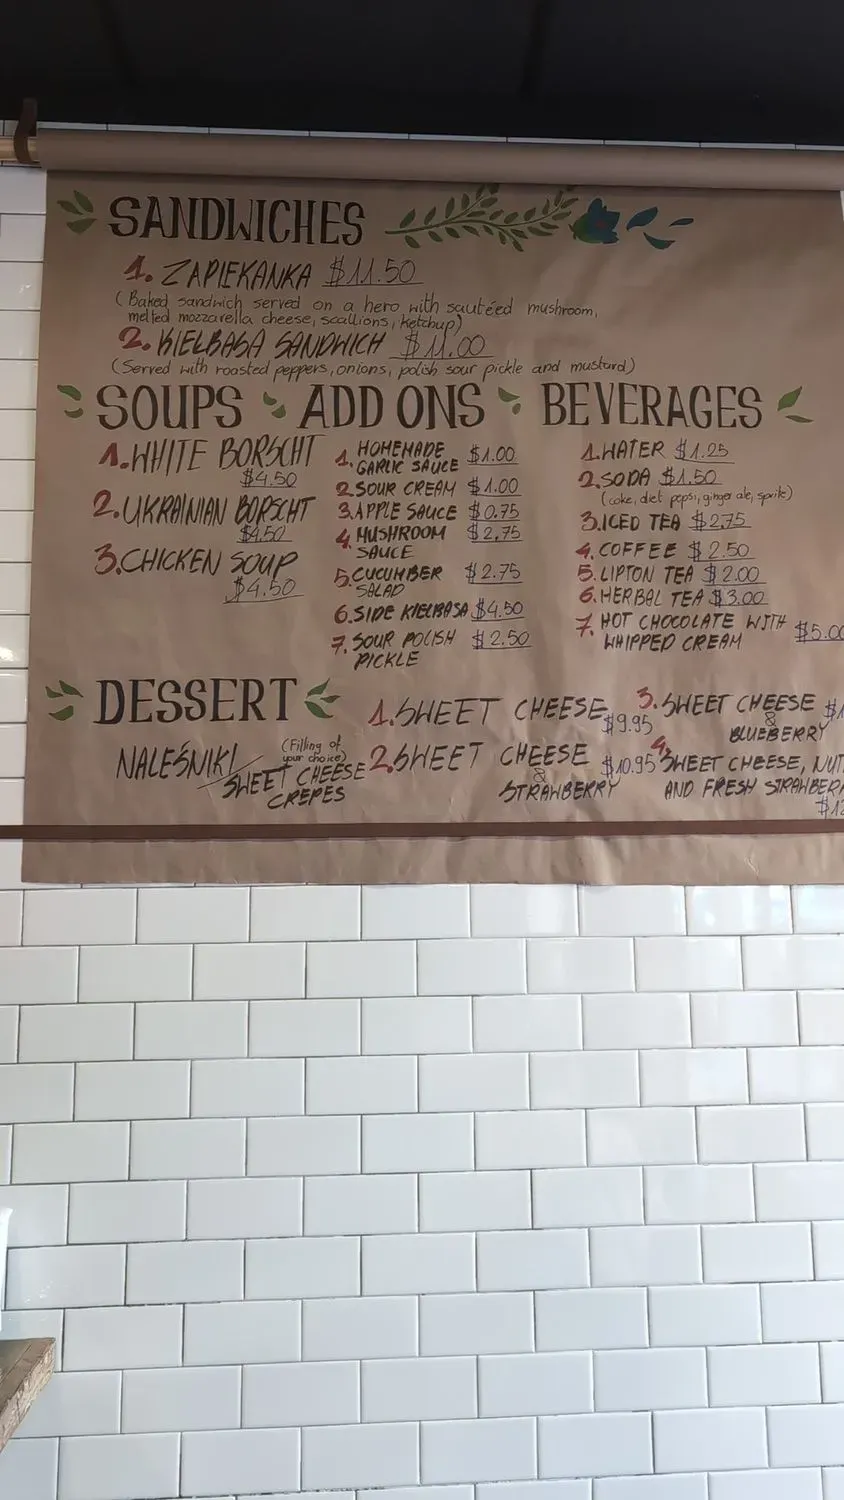 SANDWICHES
1. ZAPIEKANKA $11.50
(Baked sandwich served on a hero with sautéed mushroom,
melted mozzarella cheese, scallions, ketchup)
2. KIELBASA SANDWICH $11.00
(Served with roasted peppers, onions, polish sour pickle and mustard)
SOUPS
1. WHITE BORSCHT
$4.50
2. UKRAINIAN BORSCHT
$4.50
3. CHICKEN SOUP
$4.50
ADD ONS
1. HOMEMADE
GARLIC SAUCE $1.00
2. SOUR CREAM $1.00
3. APPLE SAUCE $0.75
4. MUSHROOM $2,75
SAUCE
5. CUCUMBER $2.75
SALAD
6. SIDE KIELBASA $4.50
7. SOUR POLISH $2.50
PICKLE
BEVERAGES
1. WATER $1.25
2. SODA $1.50
(coke, diet pepsi, ginger ale, sprite)
3. ICED TEA $2,75
4. COFFEE $2.50
5. LIPTON TEA $2.00
6. HERBAL TEA $3.00
7. HOT CHOCOLATE WITH
WHIPPED CREAM $5.00
DESSERT
NALEŚNIKI
(Filling of
your choice)
SWEET CHEESE
CREPES
1. SWEET CHEESE
$9.95
2. SWEET CHEESE $10.95
&
STRAWBERRY
3. SWEET CHEESE
&
BLUEBERRY
4. SWEET CHEESE,
AND FRESH